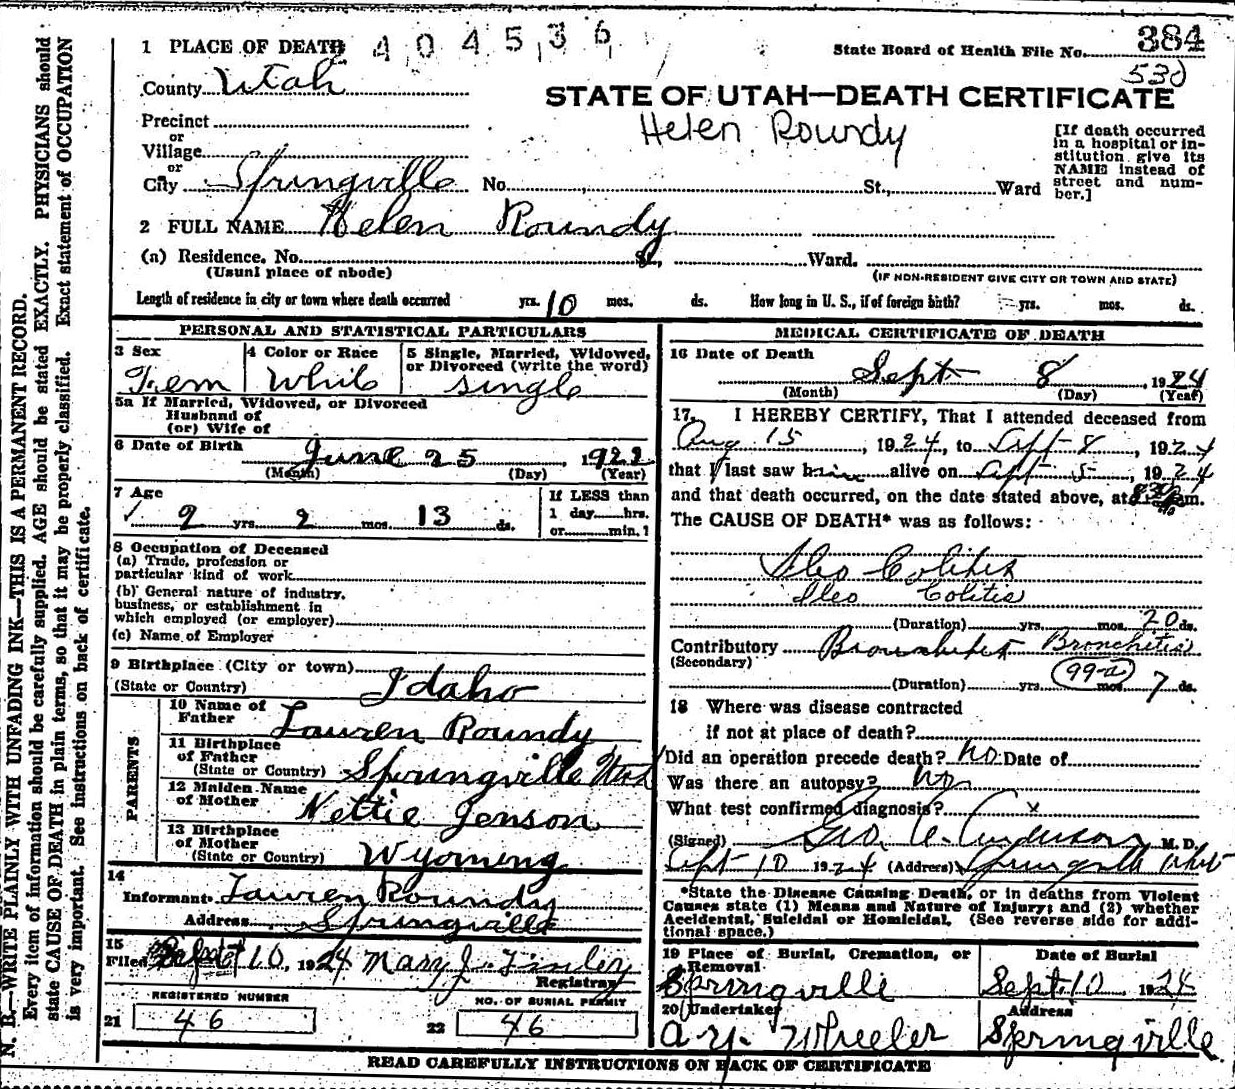 1 PLACE OF DEATH 2 4 0 4 5 3 6
State Board of Health File No. 384
530
County Utah
STATE OF UTAH—DEATH CERTIFICATE
Helen Roundy
Precinct
or
Village
or
City Springville No. St., Ward
[If death occurred
in a hospital or in-
stitution give its
NAME instead of
street and num-
ber.]
2 FULL NAME Helen Roundy
(a) Residence. No. Ward.
(Usual place of abode)
(IF NON-RESIDENT GIVE CITY OR TOWN AND STATE)
Length of residence in city or town where death occurred yrs. 10 mos. ds. How long in U. S., if of foreign birth? yrs. mos. ds.
PERSONAL AND STATISTICAL PARTICULARS
3 Sex 4 Color or Race 5 Single, Married, Widowed,
or Divorced (write the word)
Fem White single
5a If Married, Widowed, or Divorced
Husband of
(or) Wife of
6 Date of Birth June 25, 1922
(Month) (Day) (Year)
7 Age
2 yrs. 2 mos. 13 ds.
If LESS than
1 day hrs.
or min. ?
8 Occupation of Deceased
(a) Trade, profession or
particular kind of work
(b) General nature of industry,
business, or establishment in
which employed (or employer)
(c) Name of Employer
9 Birthplace (City or town)
(State or Country) Idaho
PARENTS
10 Name of
Father Lauren Roundy
11 Birthplace
of Father
(State or Country) Springville Utah
12 Maiden Name
of Mother Nettie Jenson
13 Birthplace
of Mother
(State or Country) Wyoming
14
Informant Lauren Roundy
Address Springville
15
Filed Sept 10, 1924 Mary J. Finley
Registrar
REGISTERED NUMBER NO. OF BURIAL PERMIT
21 46 22 46
MEDICAL CERTIFICATE OF DEATH
16 Date of Death Sept 8, 1924
(Month) (Day) (Year)
17. I HEREBY CERTIFY, That I attended deceased from
Aug 15, 1924, to Sept 8, 1924
that I last saw him alive on Sept 5, 1924
and that death occurred, on the date stated above, at m.
The CAUSE OF DEATH* was as follows:
Ileo Colitis
Ileo Colitis
(Duration) yrs. mos. 20 ds.
Contributory Bronchitis Bronchitis
(Secondary)
99-a
(Duration) yrs. mos. 7 ds.
18 Where was disease contracted
if not at place of death?
Did an operation precede death? no Date of
Was there an autopsy? no
What test confirmed diagnosis? x
(Signed) Geo. A. Anderson M. D.
Sept 10 1924 (Address) Springville Utah
*State the Disease Causing Death, or in deaths from Violent
Causes state (1) Means and Nature of Injury; and (2) whether
Accidental, Suicidal or Homicidal. (See reverse side for addi-
tional space.)
19 Place of Burial, Cremation, or
Removal
Date of Burial
Springville Sept. 10 1924
20 Undertaker Address
A. Y. Wheeler Springville
READ CAREFULLY INSTRUCTIONS ON BACK OF CERTIFICATE
N. B.—WRITE PLAINLY WITH UNFADING INK—THIS IS A PERMANENT RECORD.
Every item of information should be carefully supplied. AGE should be stated EXACTLY. PHYSICIANS should
state CAUSE OF DEATH in plain terms, so that it may be properly classified. Exact statement of OCCUPATION
is very important. See instructions on back of certificate.